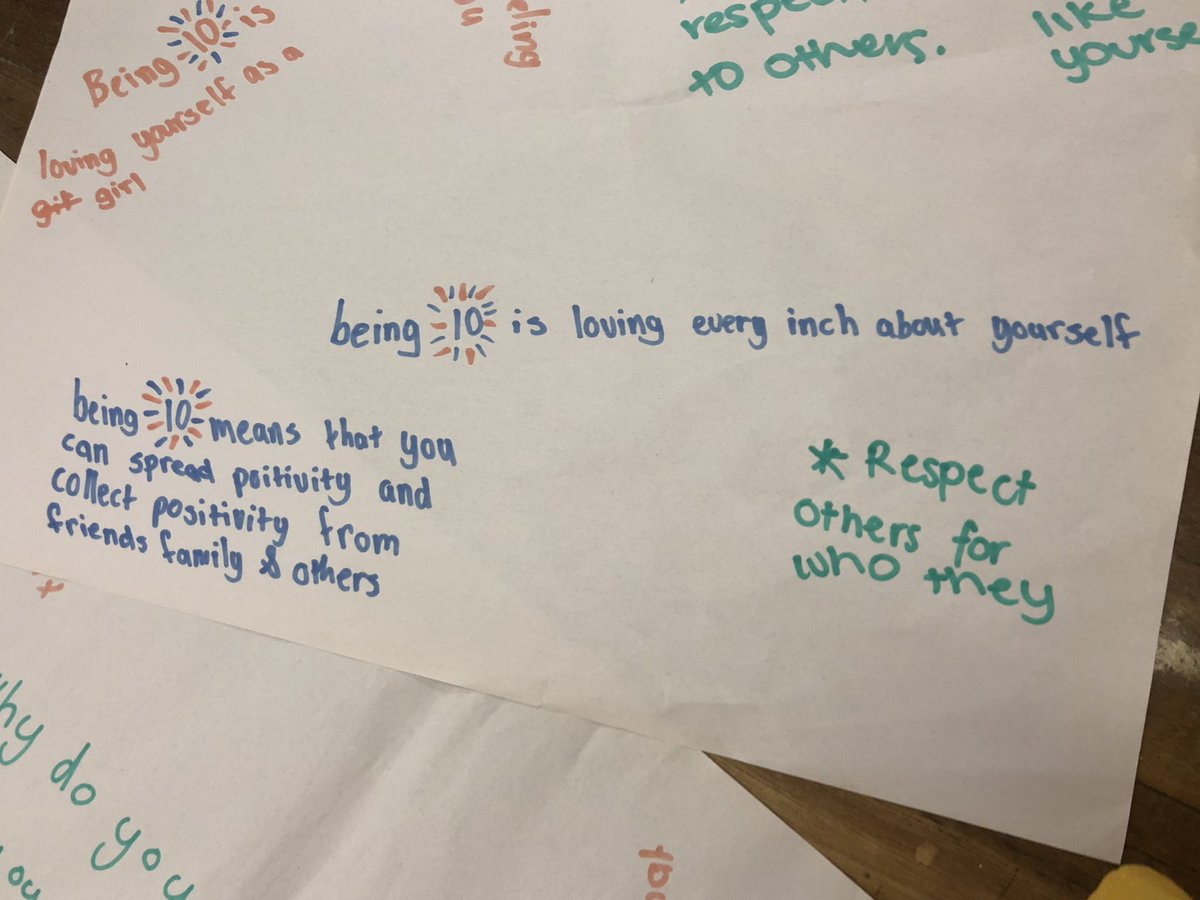 Being 10 is
loving yourself as a
git girl
eling
respec
to others.
like
yourse
being 10 is loving every inch about yourself
being 10 means that you
can spread psitivity and
collect positivity from
friends family & others
* Respect
others for
who they
hy do you
you